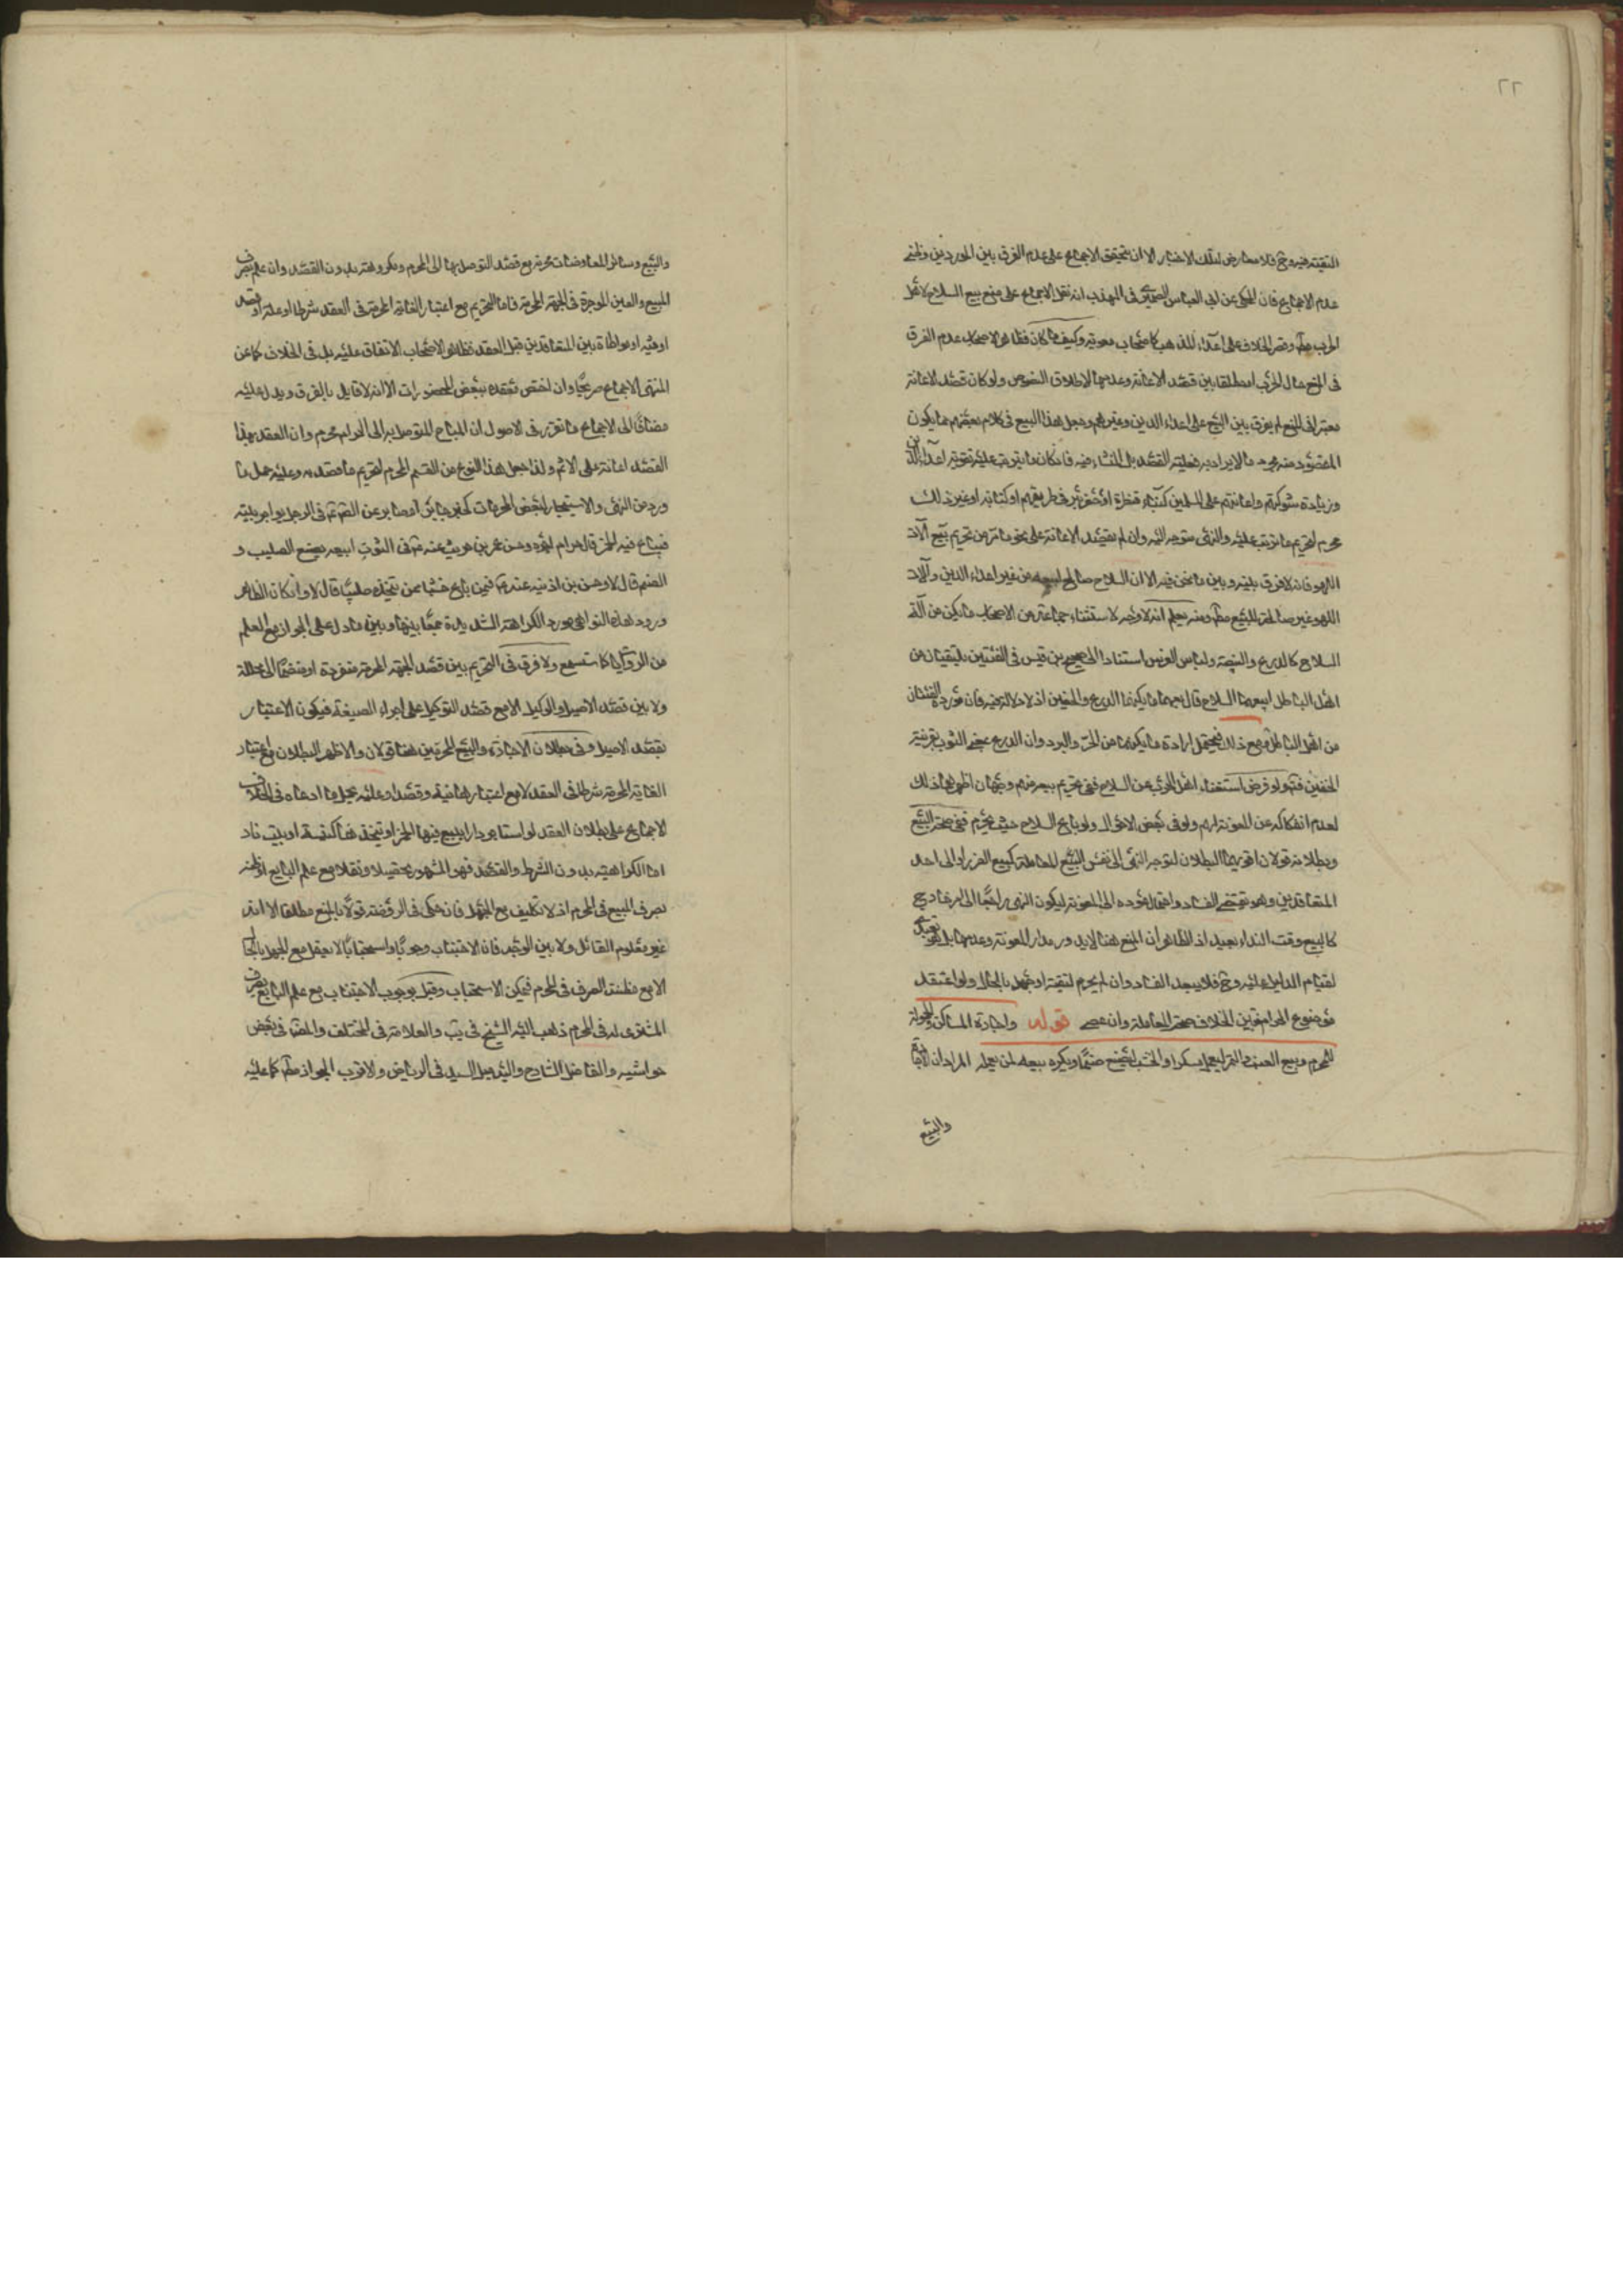 ٢٢
التقية فيه وح فلا معارض لتلك الاخبار الا ان يتحقق الاجماع على عدم الفرق بين الموردين وظني
عدم الاجماع فان المحكى عن ابى العباس فى المهذب انه نقل الاجماع على منع بيع السلاح لاهل
الحرب مطَ وقصر الخلاف على اعداء المذهب كاصحاب معوية وكيف كان فظاهر الاصحاب عدم الفرق
فى المنع حال الحرب او مطلقا بين قصد الاعانة وعدمها لاطلاق النصوص ولو كان قصد الاعانة
معتبرا فى المنع لم يفرق بين البيع على اعداء الدين وغيرهم وجعل هذا البيع فى كلام بعضهم مما يكون
المقصود منه محرم ما لا يراد به فعلية القصد بل المنشاء فيه فان كان ما يترتب عليه تقوية اعداء الدين
وزيادة شوكتهم واعانتهم على المسلمين كبناء قنطرة او حفر بئر فى طريقهم او كتابة او غير ذلك
محرم لتحريم ما يترتب عليه والنهى متوجه اليه وان لم يقصد الاعانة على نحو ما مر من تحريم بيع آلات
اللهو فانه لا فرق بينه وبين ما نحن فيه الا ان السلاح صالح لبيعه من غير اعداء الدين وآلات
اللهو غير صالحة للبيع مطَ ومنه يعلم انه لا وجه لاستثناء جماعة من الاصحاب ما يكن من آلة
السلاح كالدرع والبيضة ولباس الفرس استنادا الى صحيح بن قيس فى الفئتين يلتقيان من
اهل الباطل ابيعهما السلاح قال بعهما ما يكنهما الدرع والخفين اذ لا دلالة فيه فان مورده الفئتان
من اهل الباطل ومع ذلك فيحتمل ارادة ما يكنهما من الحر والبرد وان الدرع بمعنى الثوب بقرينة
الخفين فتَ ولو فرض استغناء اهل الحرب عن السلاح ففى تحريم بيعه منهم وجهان اظهرهما ذلك
لعدم انفكاكه عن المعونة لهم ولو فى بعض الاحوال ولو باع السلاح حيث يحرم ففى صحة البيع
وبطلانه قولان اقويهما البطلان لتوجه النهى الى نفس البيع للمعاملة كبيع الغرر او الى احد
المتعاقدين وهو يقتضى الفساد واحتمال عوده الى المعونة ليكون النهى راجعًا الى امر خارج
كالبيع وقت النداء بعيد اذ الظاهر ان المنع هنا لا يدور مدار المعونة وعدمها بل هو تعبدى
لقيام الدليل عليه وح فلا يبعد الفساد وان لم يحرم لتقية او جهل بالحال ولو اعتقد
موضوع الحرام فتبين الخلاف صحة المعاملة وان عصى قوله واجارة المساكن والحمولة
للمحرم وبيع العنب والتمر ليعمل مسكرا والخشب ليصنع صنمًا ويكره بيعه لمن يعمله المراد ان الاجارة
والبيع
والبيع وسائر المعاوضات محرمة مع قصد التوصل بها الى المحرم ومكروهة بدون القصد وان علم بصرف
المبيع والعين الموجرة فى الجهة المحرمة فاما التحريم مع اعتبار الغاية المحرمة فى العقد شرطا او علة او قصد
او نية او مواطاة بين المتعاقدين قبل العقد فظاهر الاصحاب الاتفاق عليه بل فى الخلاف كما عن
المنتهى الاجماع صريحًا وان اختص معقده ببعض المحضورات الا انه لا قايل بالفرق ويدل عليه
مضافًا الى الاجماع ما تقرر فى الاصول ان المباح المتوصل به الى الحرام محرم وان العقد بهذا
القصد اعانة على الاثم ولذا جعل هذا النوع من القسم المحرم لتحريم ما قصد به وعليه حمل ما
ورد من النهى والاستيجار لبعض المحرمات كخبر جابر او صابر عن الصّ فى الرجل يواجر بيته
فيباع فيه الخمر قال حرام اجره وحسن عمر بن حريث عنه ع فى التوت ابيعه يصنع الصليب و
الصنم قال لا وحسن بن اذينه عنه ع فيمن باع خشبًا ممن يتخذه صلبانا قال لا وان كان الظاهر
ورود هذه النواهى مورد الكراهة الشديدة جمعًا بينها وبين ما دل على الجواز مع العلم
من الروايات كما ستسمع ولا فرق فى التحريم بين قصد الجهة المحرمة منفردة او منضمًا الى المحللة
ولا بين قصد الاصيل والوكيل الا مع قصد التوكيل على اجراء الصيغة فيكون الاعتبار
بقصد الاصيل وفى بطلان الاجارة والبيع المحرمين هنا قولان والاظهر البطلان مع اعتبار
الغاية المحرمة شرطا فى العقد لا مع اعتبارها نية وقصدا وعليه يحمل ما ادعاه فى الخلاف
الاجماع على بطلان العقد لو استاجر دارا ليبيع فيها الخمر او يتخذ هنا كنيسة او بيت نار
اما الكراهية بدون الشرط والقصد فهو المشهور تحصيلا ونقلا مع علم البايع او ظنه
بصرف المبيع فى المحرم اذ لا تكليف مع الجهل فان حكى فى الروضة قولًا بالمنع مطلقا الا انه
غير معلوم القائل ولا بين الوجه فان الاجتناب وجوبًا واستحبابًا لا يعقل مع الجهل بالحال
الا مع مظنة الصرف فى المحرم فيمكن الاستحباب وقيل بوجوب الاجتناب مع علم البايع بصرف
المشترى له فى المحرم ذهب اليه الشيخ فى يَب والعلامة فى المختلف والمصَ فى بعض
حواشيه والفاضل الشارح واليه ميل السيد فى الرياض والاقرب الجواز مطَ كما عليه